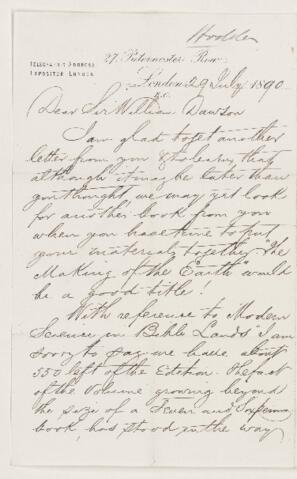 Hodder
27, Paternoster Row,
TELEGRAPHIC ADDRESS
EXPOSITOR LONDON
London 29 July 1890
E.C.
Dear Sir William Dawson
I am glad to get another
letter from you & to learn that
although it may be later than
you thought, we may yet look
for another book from you
when you have time to put
your materials together. "The
Making of the Earth" would
be a good title!
With reference to "Modern
Science in Bible Lands" I am
sorry to say we have about
550 left of the Edition. The fact
of the volume growing beyond
the size of a Seven and Sixpenny
book, has stood in the way